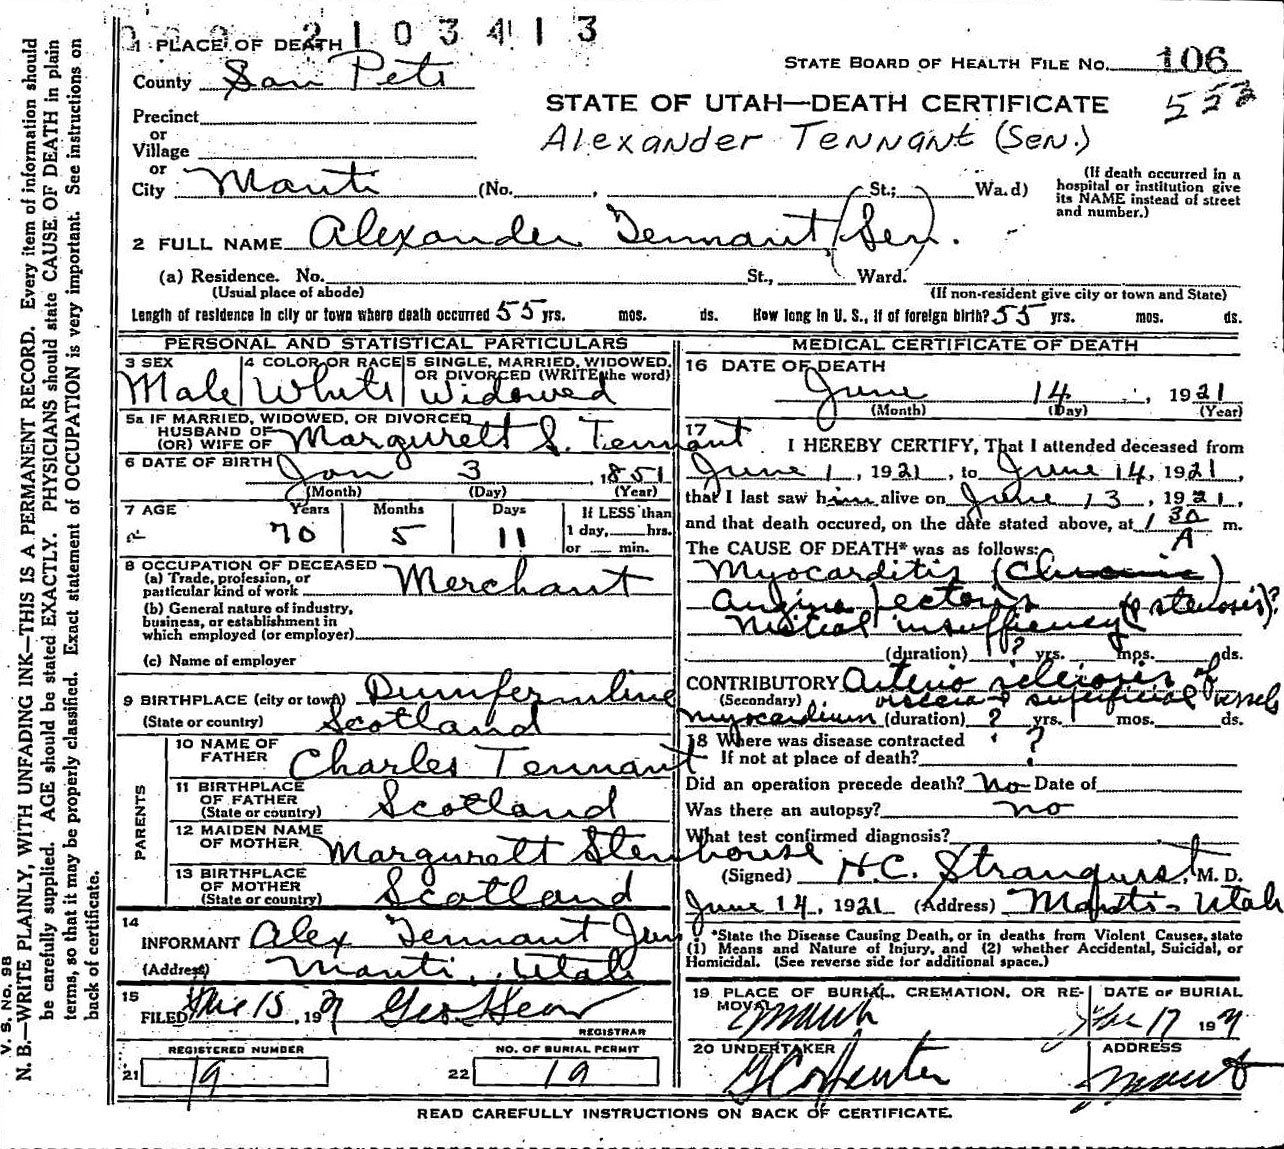 2103413
1 PLACE OF DEATH
County San Pete
STATE BOARD OF HEALTH FILE No. 106
STATE OF UTAH—DEATH CERTIFICATE
Precinct
or
Village
Alexander Tennant (Sen.)
or
City Manti (No. , St.; Wa.d)
(If death occurred in a
hospital or institution give
its NAME instead of street
and number.)
2 FULL NAME Alexander Tennant (Sen.
(a) Residence. No. St., Ward.
(Usual place of abode)
(If non-resident give city or town and State)
Length of residence in city or town where death occurred 55 yrs. mos. ds. How long in U. S., if of foreign birth? 55 yrs. mos. ds.
PERSONAL AND STATISTICAL PARTICULARS
3 SEX
Male
4 COLOR OR RACE
White
5 SINGLE, MARRIED, WIDOWED,
OR DIVORCED (WRITE the word)
Widowed
5a IF MARRIED, WIDOWED, OR DIVORCED
HUSBAND OF
(OR) WIFE OF Margurett S. Tennant
6 DATE OF BIRTH Jan 3 , 1851
(Month) (Day) (Year)
7 AGE Years Months Days If LESS than
1 day, hrs.
or min.
70 5 11
8 OCCUPATION OF DECEASED
(a) Trade, profession, or
particular kind of work Merchant
(b) General nature of industry,
business, or establishment in
which employed (or employer)
(c) Name of employer
9 BIRTHPLACE (city or town) Dumfermline
(State or country) Scotland
PARENTS
10 NAME OF
FATHER Charles Tennant
11 BIRTHPLACE
OF FATHER
(State or country) Scotland
12 MAIDEN NAME
OF MOTHER Margurett Stenhouse
13 BIRTHPLACE
OF MOTHER
(State or country) Scotland
14
INFORMANT Alex Tennant Jun
(Address) Manti, Utah
15
FILED June 15, 1921 Geo.
REGISTRAR
REGISTERED NUMBER
21 19
NO. OF BURIAL PERMIT
22 19
MEDICAL CERTIFICATE OF DEATH
16 DATE OF DEATH
June 14 , 1921
(Month) (Day) (Year)
17
I HEREBY CERTIFY, That I attended deceased from
June 1, 1921, to June 14, 1921,
that I last saw him alive on June 13, 1921,
and that death occured, on the date stated above, at 1 30 A m.
The CAUSE OF DEATH* was as follows:
Myocarditis (Chronic)
Angina Pectoris
Mitral insufficiency (& stenosis)?
(duration) ? yrs. mos. ds.
CONTRIBUTORY Arterio sclerosis of
(Secondary) viscera & superficial vessels
myocardium (duration) ? yrs. mos. ds.
18 Where was disease contracted
If not at place of death? ?
Did an operation precede death? No Date of
Was there an autopsy? no
What test confirmed diagnosis?
(Signed) H.C. Stranquist, M. D.
June 14, 1921 (Address) Manti - Utah
*State the Disease Causing Death, or in deaths from Violent Causes, state
(1) Means and Nature of Injury, and (2) whether Accidental, Suicidal, or
Homicidal. (See reverse side for additional space.)
19 PLACE OF BURIAL, CREMATION, OR RE-
MOVAL
Manti
DATE OF BURIAL
June 17 1921
20 UNDERTAKER
ADDRESS
Manti
READ CAREFULLY INSTRUCTIONS ON BACK OF CERTIFICATE.
V. S. No. 98
N. B.—WRITE PLAINLY, WITH UNFADING INK—THIS IS A PERMANENT RECORD. Every item of information should
be carefully supplied. AGE should be stated EXACTLY. PHYSICIANS should state CAUSE OF DEATH in plain
terms, so that it may be properly classified. Exact statement of OCCUPATION is very important. See instructions on
back of certificate.